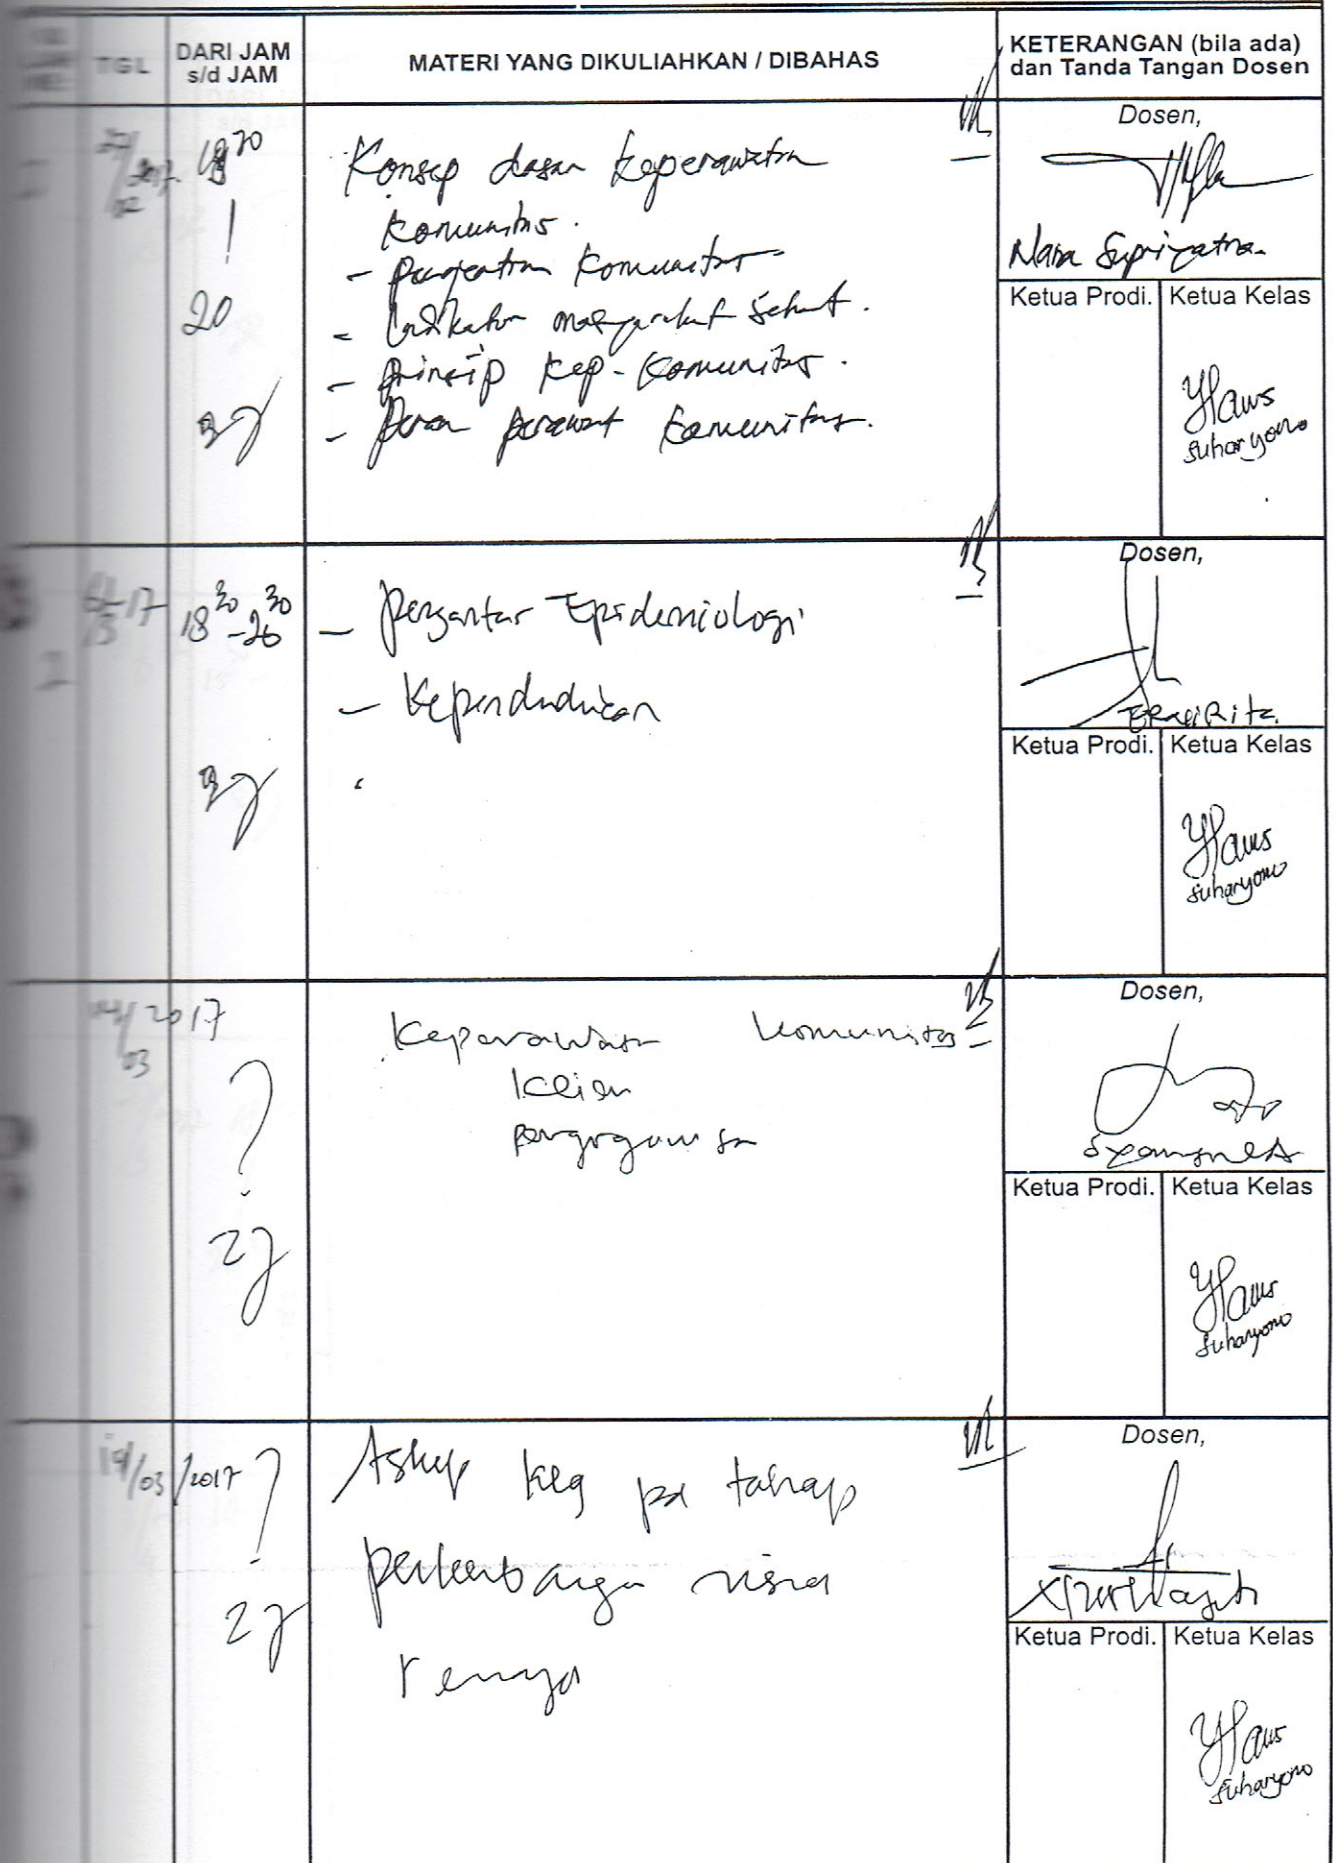 TGL
DARI JAM
s/d JAM
MATERI YANG DIKULIAHKAN / DIBAHAS
KETERANGAN (bila ada)
dan Tanda Tangan Dosen
27/02 2017
20
Konsep dasar keperawatan
komunitas.
- pengertian komunitas
- Indikator masyarakat sehat.
- prinsip kep. komunitas.
- peran perawat komunitas.
Dosen,
Nana Supriyatna
Ketua Prodi.
Ketua Kelas
Suharyono
2
17
18 30 - 20 30
- Pengantar Epidemiologi
- Kependudukan
Dosen,
Ketua Prodi.
Ketua Kelas
Suharyono
/2017
03
?
2j
Keperawatan komunitas
klien
Dosen,
Ketua Prodi.
Ketua Kelas
Suharyono
19/03/2017
?
2j
Askep klg pd tahap
perkembangan usia
remaja
Dosen,
Ketua Prodi.
Ketua Kelas
Suharyono